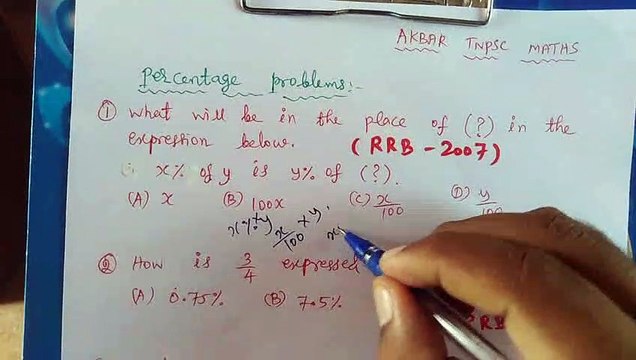 AKBAR TNPSC MATHS
Percentage problems:-
① What will be in the place of (?) in the
expression below. (RRB - 2007)
x% of y is y% of (?).
(A) x (B) 100x (C) x/100 (D) y/100
x/100 × y
② How is 3/4 expressed
(A) 0.75% (B) 7.5%
RB